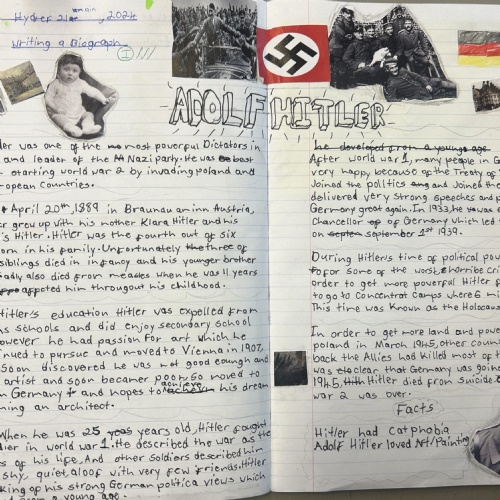 Hyder 21 2024
Writing a Biography
I
ADOLF HITLER
was one of the most powerful Dictators in
and leader of the Nazi party. He was best
starting world war 2 by invading poland and
European Countries.
April 20th, 1889 in Braunau am inn Austria,
grew up with his mother Klara Hitler and his
Hitler. Hitler was the fourth out of six
born in his family. Unfortunately three of
siblings died in infancy and his younger brother
sadly also died from measles when he was 11 years
affected him throughout his childhood.
Hitler's education Hitler was expelled from
schools and did enjoy secondary school
However he had passion for art which he
continued to pursue and moved to Vienna in 1907,
soon discovered he was not good enough and
artist and soon became poor. So moved to
Germany and hopes to achieve his dream
an architect.
When he was 25 years old, Hitler fought
in world war 1. He described the war as the
of his life. And other soldiers described him
shy, quiet, aloof with very few friends. Hitler
of his strong German politica views which
a young age.
he developed from a young age.
After world war 1, many people in
very happy, because of the Treaty of
Joined the politics and Joined the
delivered very strong speeches and
Germany great again. In 1933, he was
Chancellor of Germany which led
on september 1st 1939.
During Hitler's time of political
for some of the worst, horrible
order to get more powerful Hitler
to go to Concentrat camps where 6
This time was Known as the Holocaus
In order to get more land and
poland in March 1945, other
back the Allies had Killed most of
was clear that Germany was
1945, Hitler died from suicide
war 2 was over.
Facts
Hitler had Catphobia
Adolf Hitler loved Art/Painting